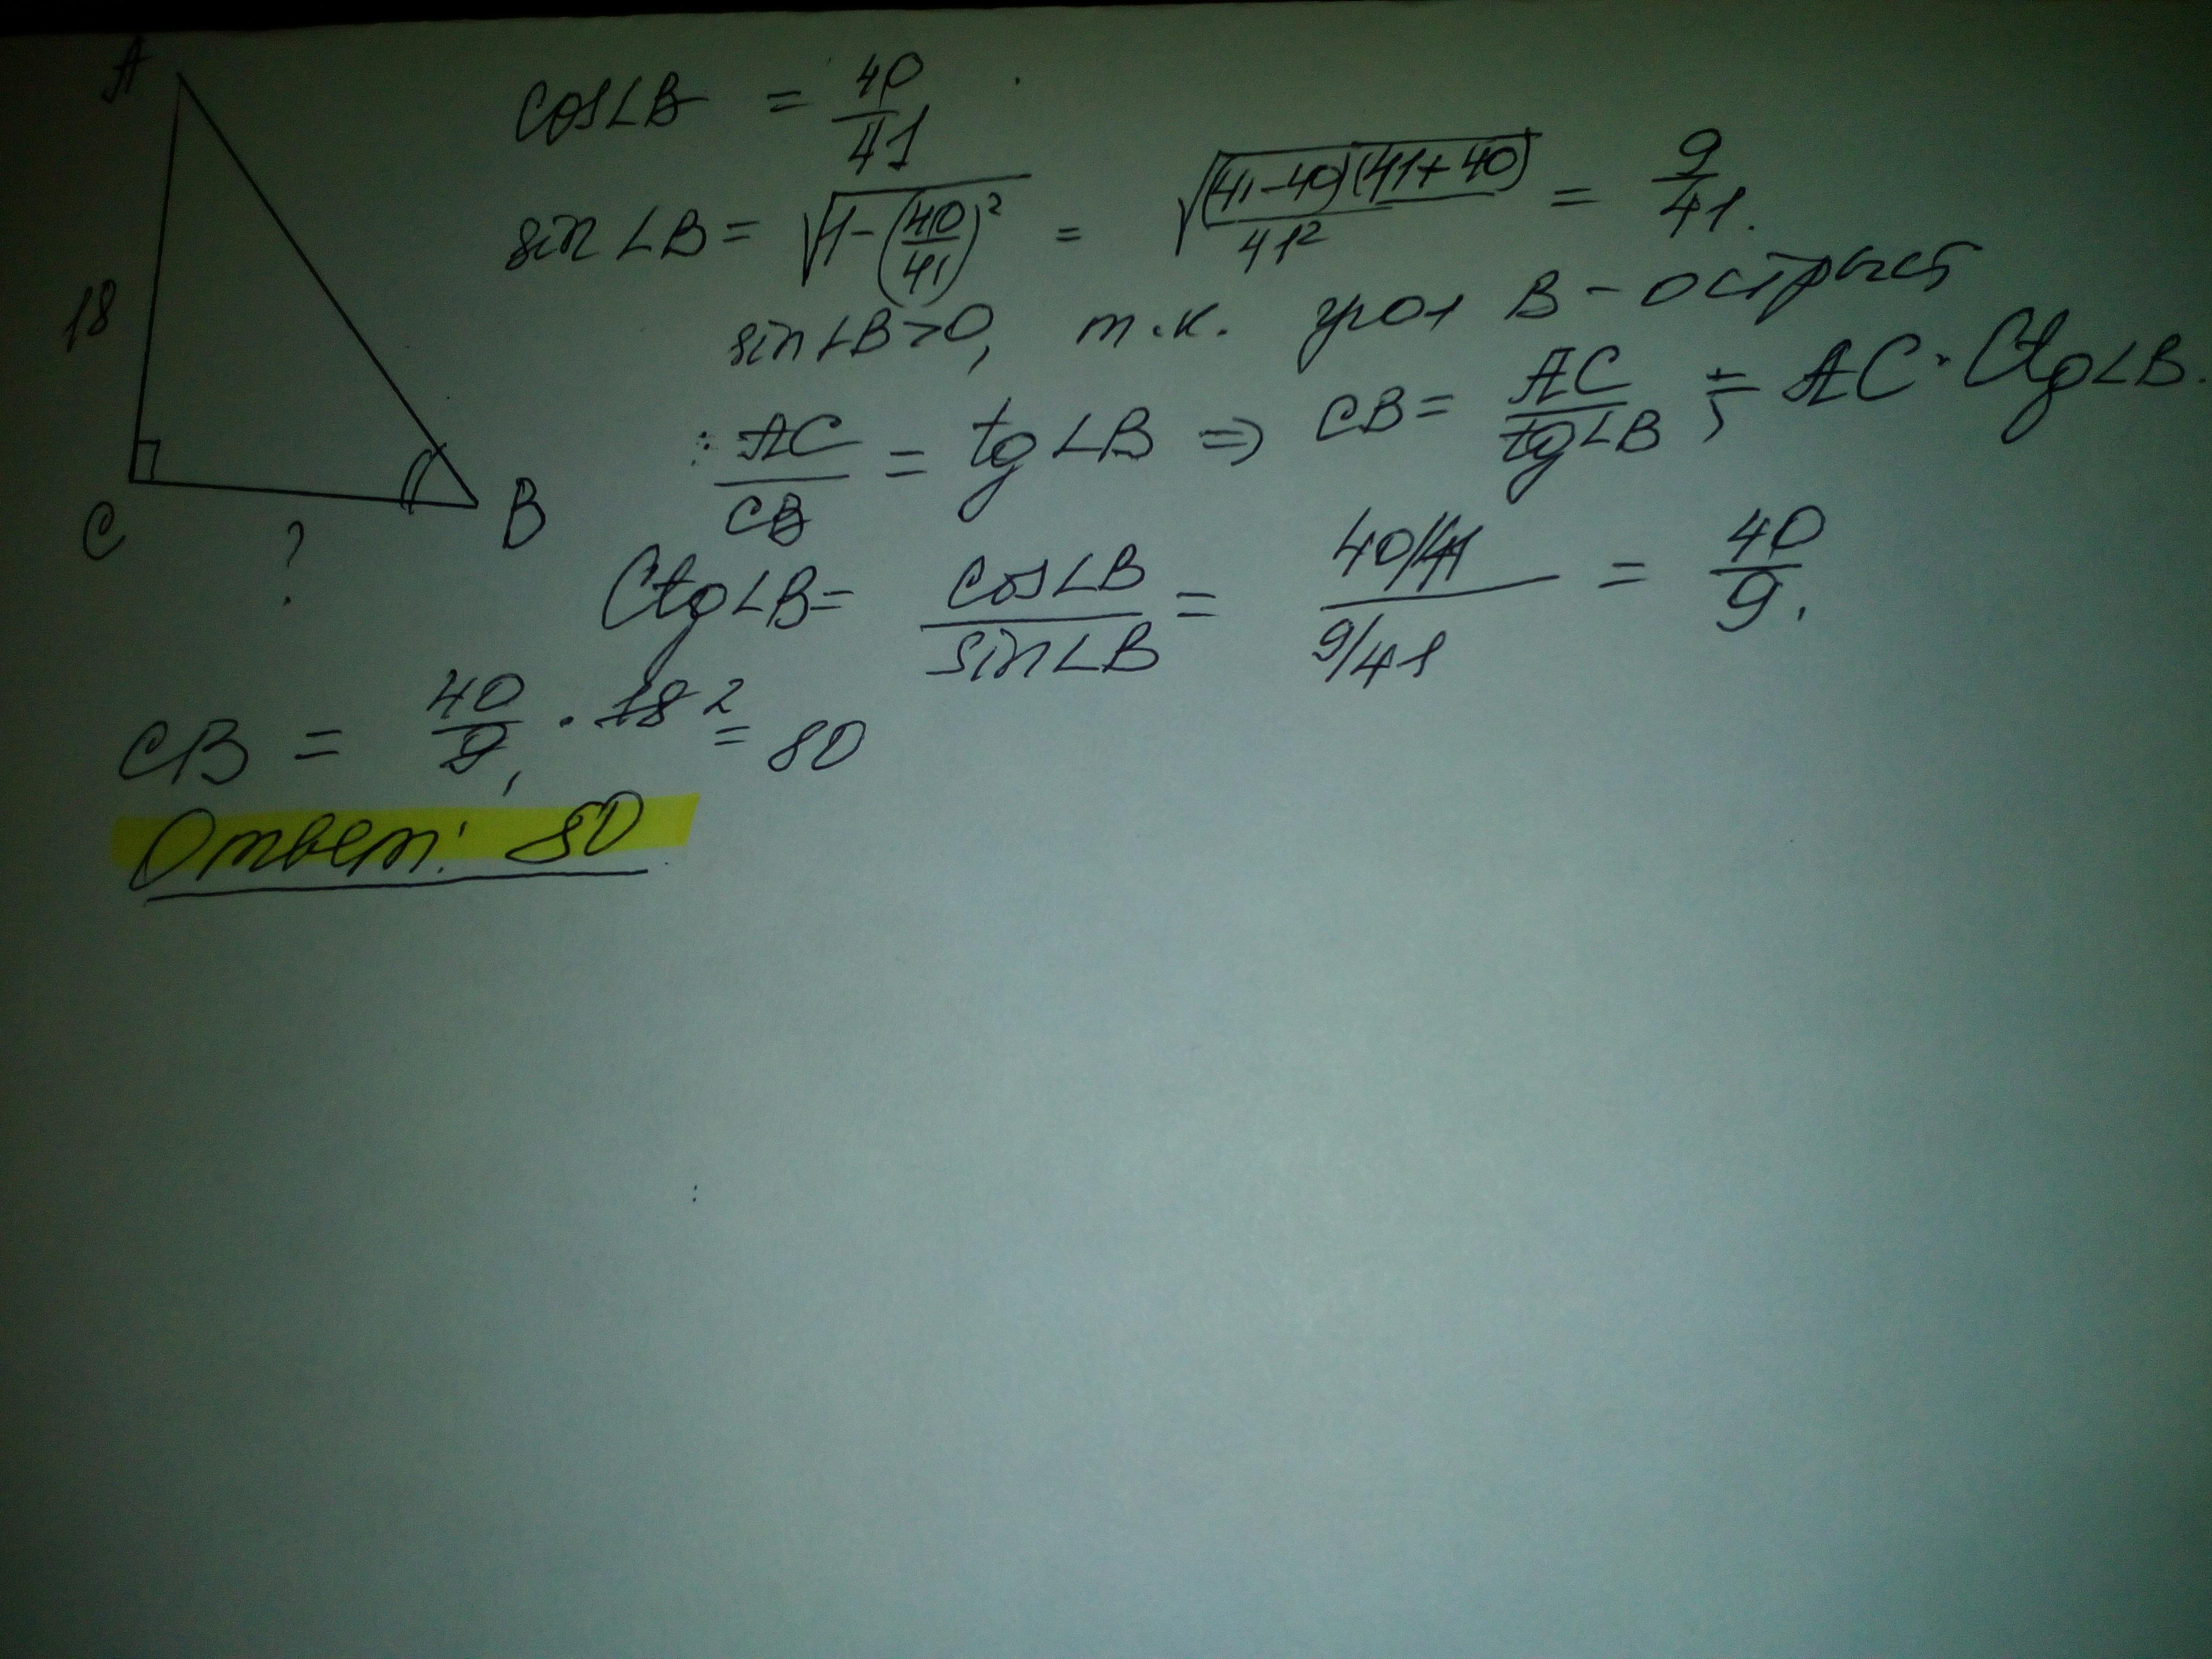 A
18
C
?
B
cos∠B = 40/41
sin∠B = √(1-(40/41)²) = √((41-40)(41+40)/41²) = 9/41.
sin∠B>0, т.к. угол B - острый
AC/CB = tg∠B => CB = AC/tg∠B = AC·Ctg∠B.
Ctg∠B = cos∠B/sin∠B = (40/41)/(9/41) = 40/9.
CB = 40/9 · 18 2 = 80
Ответ: 80